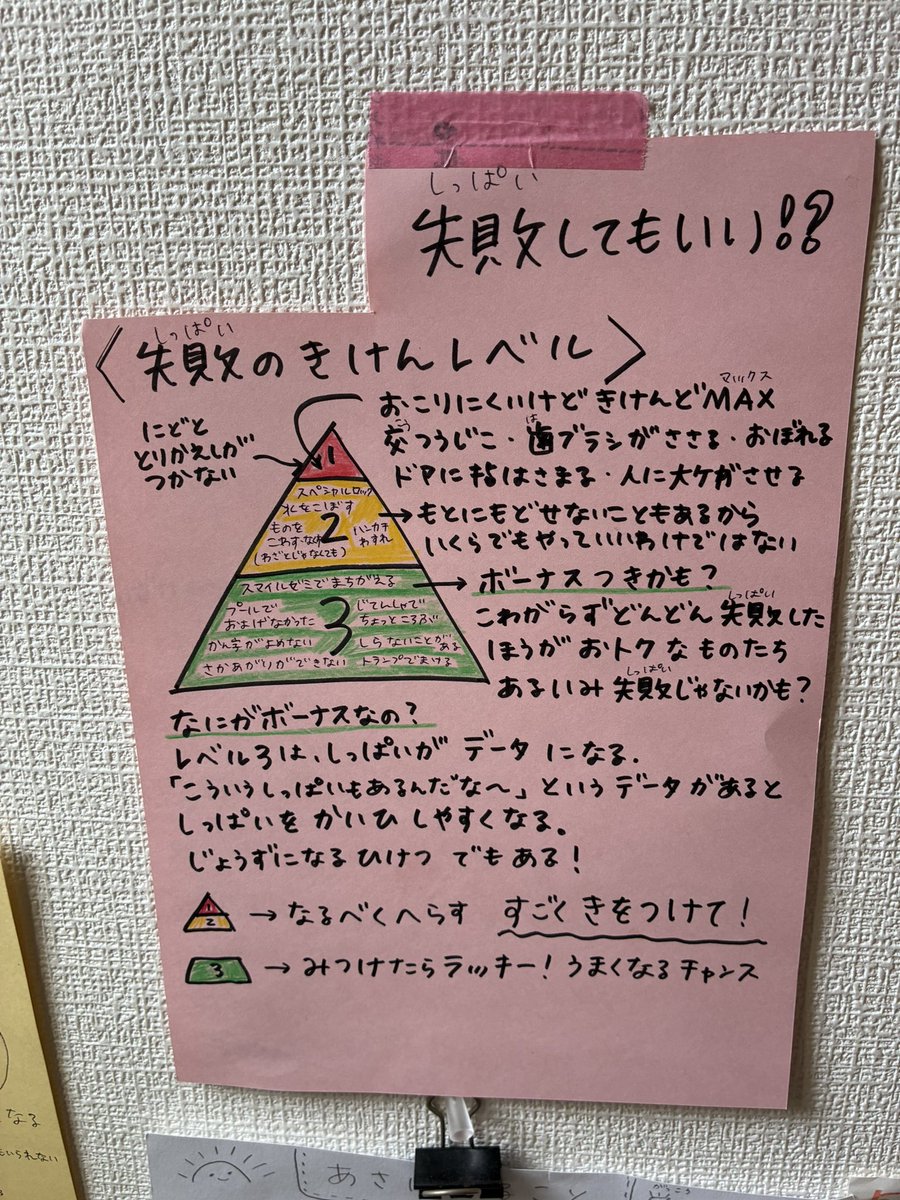 しっぱい
失敗してもいい!?
しっぱい
〈失敗のきけんレベル〉
マックス
おこりにくいけどきけんどMAX
こう は
交つうじこ・歯ブラシがささる・おぼれる
ドアに指はさまる・人に大ケガさせる
にどと
とりかえしが
つかない
1
スペシャルロック
水をこぼす
2
ものを
こわす・なくす
(わざとじゃなくても)
ハンカチ
わすれ
もとにもどせないこともあるから
いくらでもやっていいわけではない
スマイルゼミでまちがえる
3
プールで
およげなかった
かん字がよめない
さかあがりができない
じてんしゃで
ちょっところぶ
しらないことがある
トランプでまける
ボーナスつきかも?
しっぱい
こわがらずどんどん失敗した
ほうがおトクなものたち
しっぱい
あるいみ失敗じゃないかも?
なにがボーナスなの?
レベル3は、しっぱいがデータになる.
「こういうしっぱいもあるんだな〜」というデータがあると
しっぱいをかいひしやすくなる。
じょうずになるひけつでもある!
1
2
→なるべくへらす すごくきをつけて!
3 →みつけたらラッキー!うまくなるチャンス
なる
いられない
あさ
こと